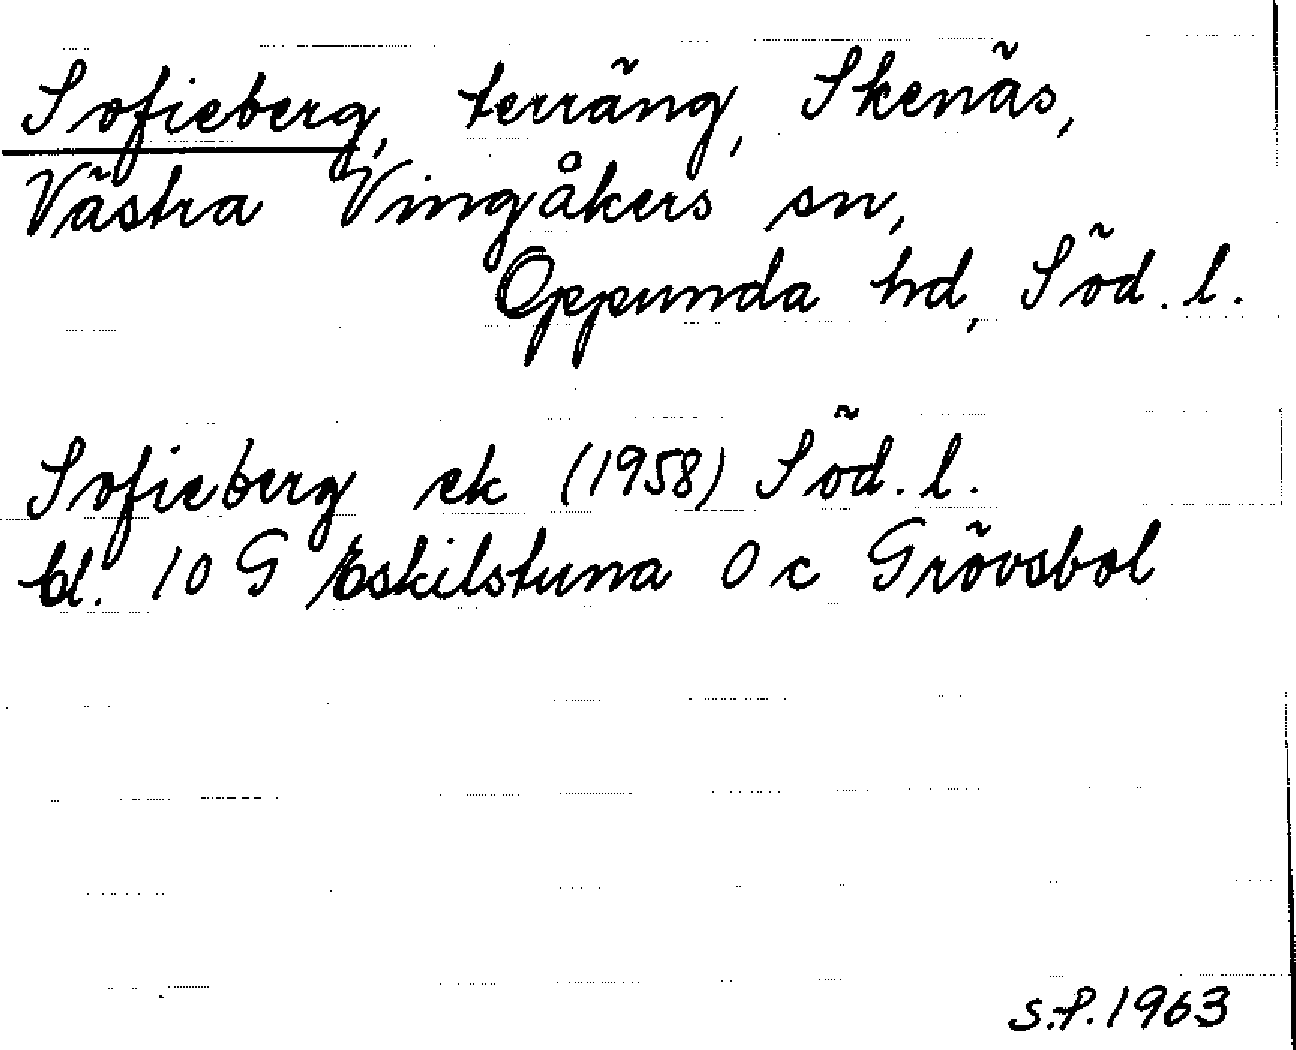 Sofieberg, terräng, Skenäs,
Västra Vingåkers sn,
Oppunda hd, Söd. l.
Sofieberg ek (1958) Söd. l.
bl. 10 G Eskilstuna 0 c Grövsbol
S.P. 1963